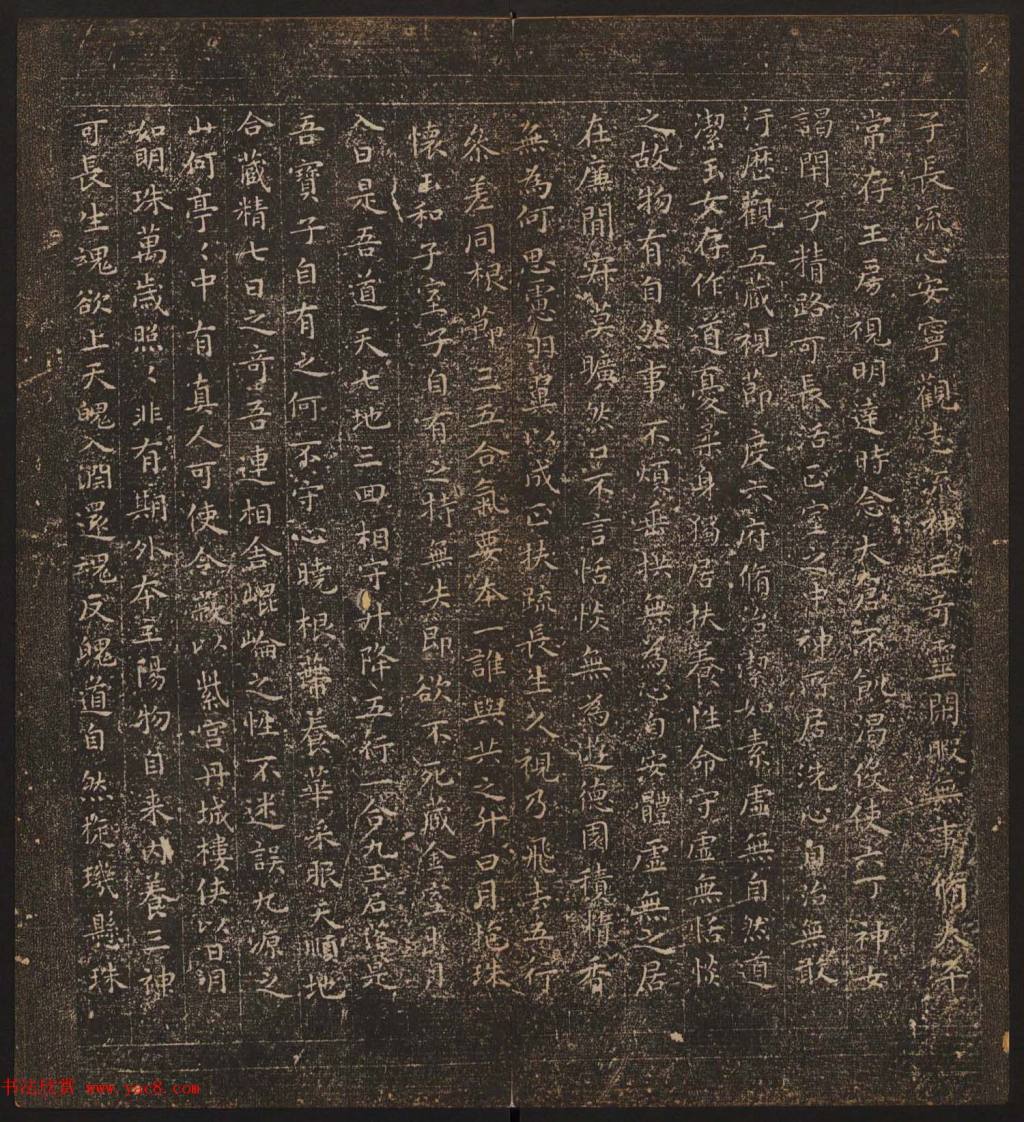 子長流心安寧觀志流神三奇靈閑暇無事脩太平
常存玉房視明達時念太倉不飢渴役使六丁神女
謁閇子精路可長活正室之中神所居洗心自治無敢
汙歷觀五藏視節度六府脩治潔如素虛無自然道
潔玉女存作道憂柔身獨居扶養性命守虛無恬惔
之故物有自然事不煩垂拱無為心自安體虛無之居
在廉閒寂莫曠然口不言恬惔無為遊德園積精香
無為何思慮羽翼以成正扶疏長生久視乃飛去五行
參差同根節三五合氣要本一誰與共之升日月抱珠
懷玉和子室子自有之持無失即欲不死藏金室出月
入日是吾道天七地三回相守升降五行一合九玉石落是
吾寶子自有之何不守心曉根蔕養華采服天順地
合藏精七日之奇吾連相舍崐崘之性不迷誤九源之
山何亭〻中有真人可使令蔽以紫宮丹城樓俠以日月
如明珠萬歲照〻非有期外本三陽物自来內養三神
可長生魂欲上天魄入淵還魂反魄道自然琁璣懸珠
书法欣赏 www.yac8.com